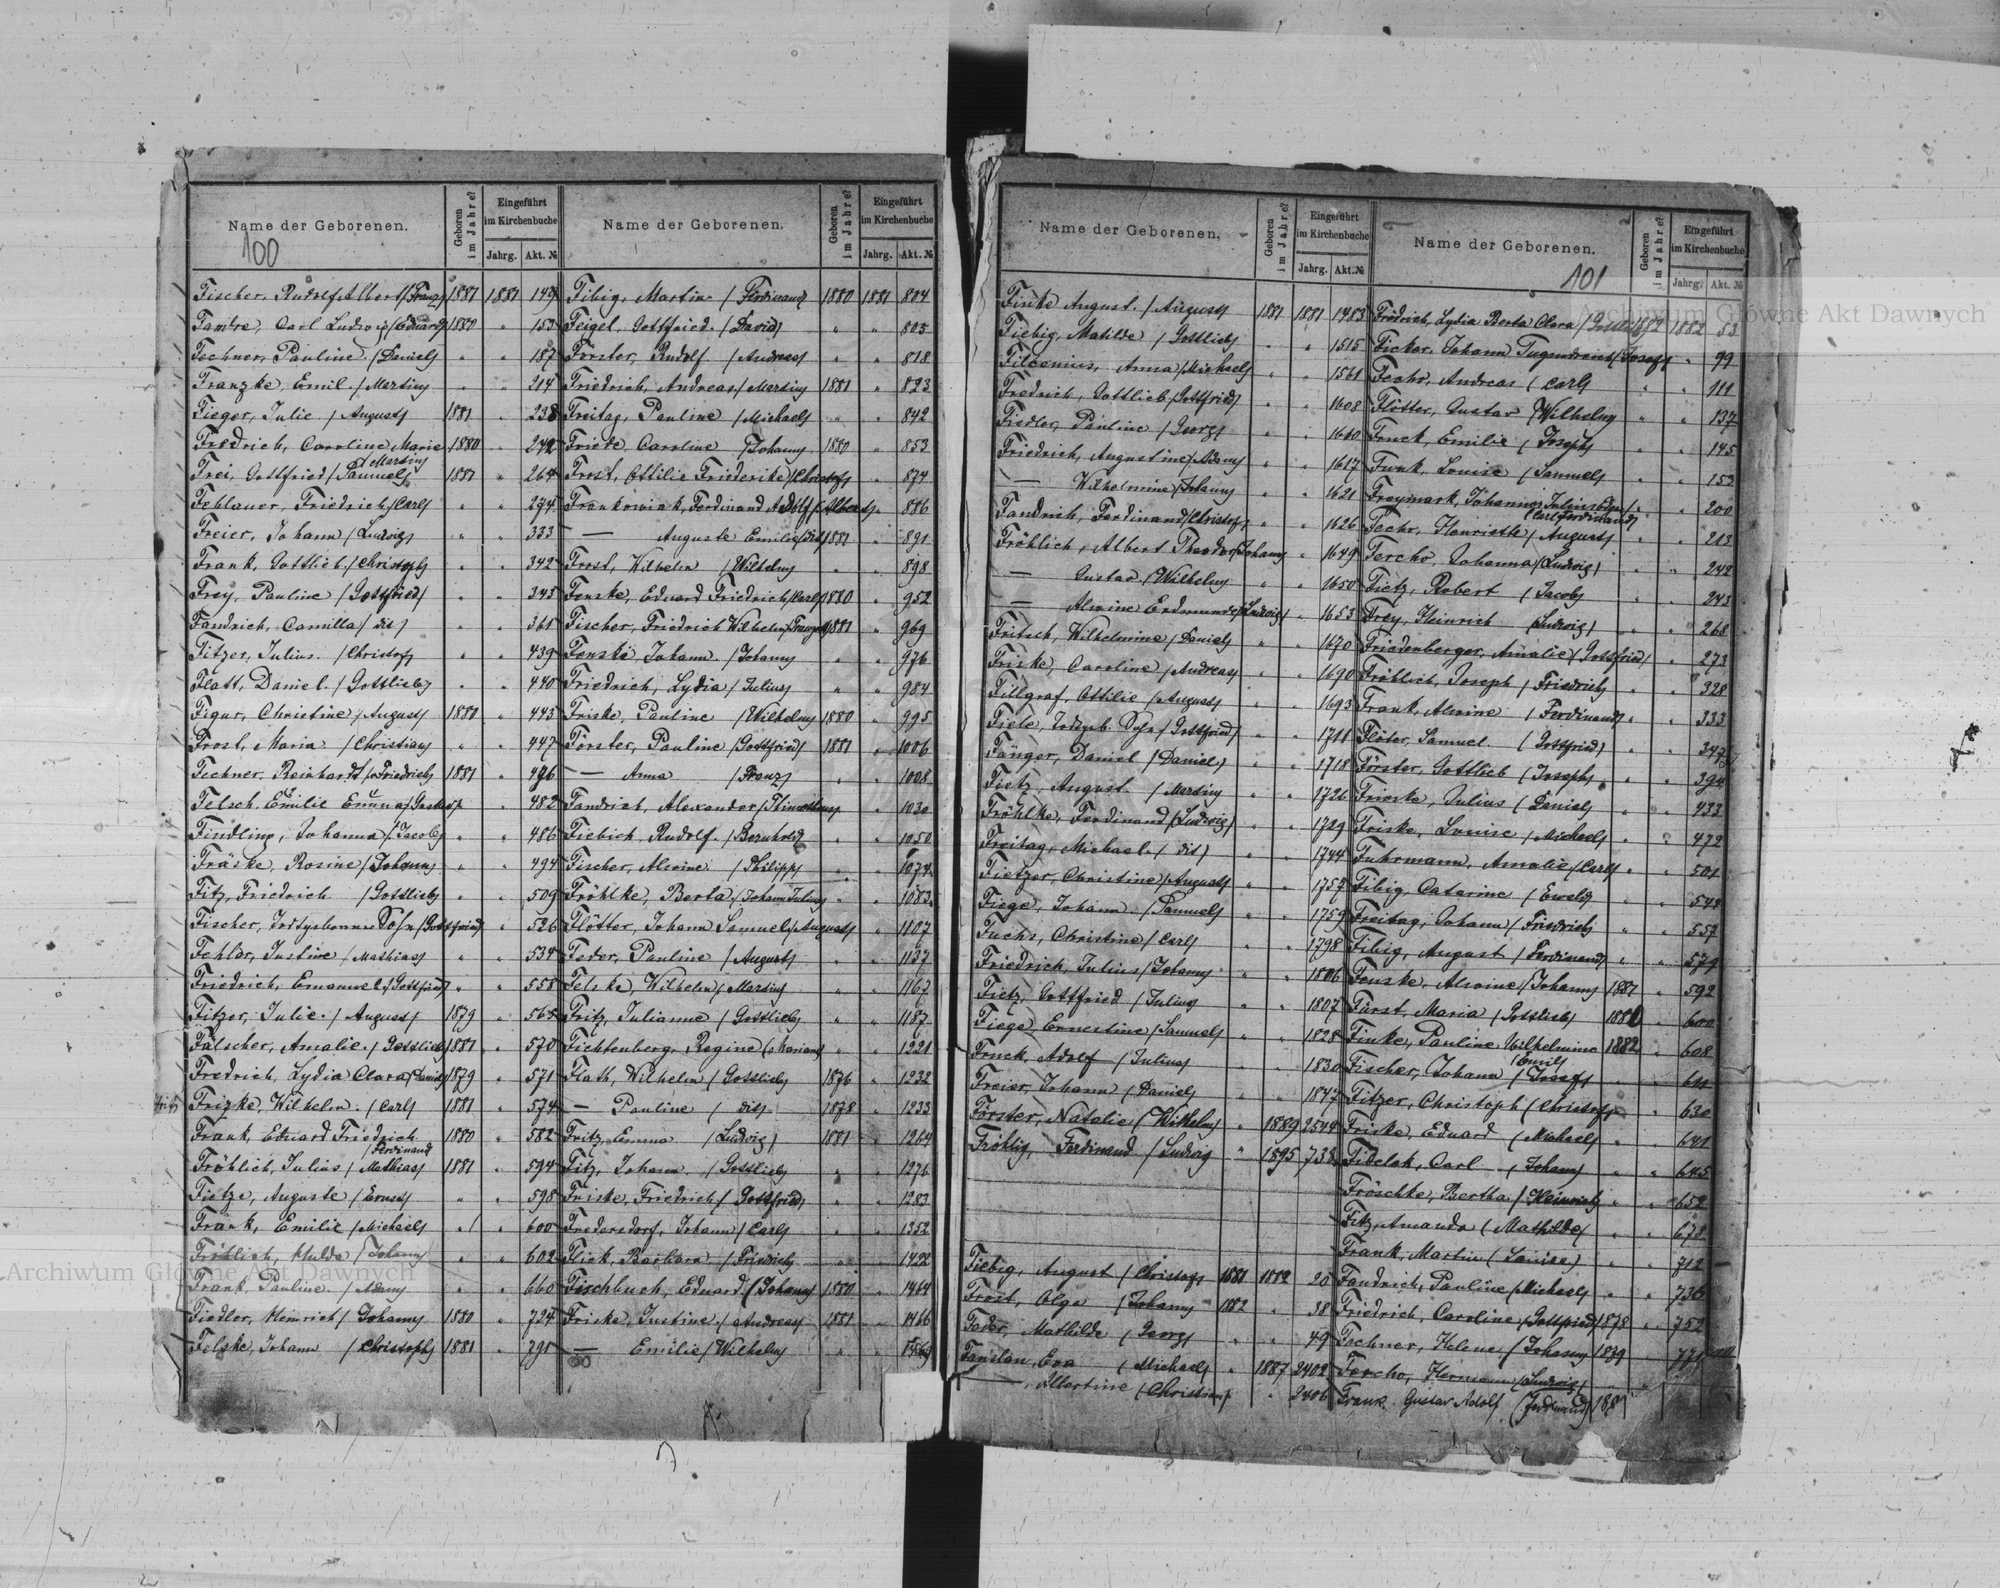 Name der Geborenen.
Geboren im Jahre?
Eingeführt im Kirchenbuche
Jahrg.
Akt. №
100
Fischer, Rudolf Albert (Franz) 1881 1881 149
Fambre, Carl Ludwig (Eduard) 1880 " 153
Fechner, Pauline (Daniel) " " 187
Franzke, Emil (Martin) " " 214
Fieger, Julie (August) 1881 " 238
Fredrich, Caroline Marie 1880 " 242
(Martin)
Frei, Gottfried (Samuel) 1881 " 264
Fehlauer, Friedrich (Carl) " " 274
Freier, Johann (Ludwig) " " 333
Frank, Gottlieb (Christoph) " " 342
Frey, Pauline (Gottfried) " " 343
Fandrich, Camilla (dit) " " 368
Fitzer, Julius (Christof) " " 439
Flatt, Daniel (Gottlieb) " " 440
Figur, Christine (August) 1880 " 443
Frost, Maria (Christian) " " 447
Fechner, Reinhardt (Friedrich) 1881 " 476
Felsch, Emilie Emma (Gustav) " " 482
Findling, Johanna (Jacob) " " 486
Fräske, Rosine (Johann) " " 494
Fitz, Friedrich (Gottlieb) " " 509
Fischer, Todtgeborner Sohn (Gottfried) " 526
Fehlar, Justine (Mathias) " " 534
Friedrich, Emanuel (Gottfried) " " 558
Fitzer, Julie (August) 1879 " 565
Fälscher, Amalie (Gottlieb) 1881 " 570
Fredrich, Lydia Clara (Daniel) 1879 " 571
Friske, Wilhelm (Carl) 1881 " 574
Frank, Eduard Friedrich 1880 " 582
(Ferdinand)
Fröhlich, Julius (Mathias) 1881 " 594
Fietze, Auguste (Ernst) " " 598
Frank, Emilie (Michael) " " 600
Fröhlich, Hulda (Johann) " " 602
Frank, Pauline (Adam) " " 660
Fiedler, Heinrich (Johann) 1880 " 724
Felske, Johann (Christoph) 1881 " 791
Name der Geborenen.
Geboren im Jahre?
Eingeführt im Kirchenbuche
Jahrg.
Akt. №
Fibig, Martin (Ferdinand) 1880 1881 804
Feigel, Gottfried (David) " " 805
Förster, Rudolf (Andreas) " " 818
Friedrich, Andreas (Martin) 1881 " 823
Freitag, Pauline (Michael) " " 842
Friede, Caroline (Johann) 1880 " 853
Frost, Ottilie Friederike (Christof) " 874
Frankowiak, Ferdinand Adolf (Albert) " 886
— Auguste Emilie (dit) 1881 " 891
Frost, Wilhelm (Wilhelm) " " 898
Fenske, Eduard Friedrich (Carl) 1880 " 952
Fischer, Friedrich Wilhelm (Franz) 1881 " 969
Fenske, Johann (Johann) " " 976
Friedrich, Lydia (Julius) " " 984
Friske, Pauline (Wilhelm) 1880 " 995
Förster, Pauline (Gottfried) 1881 " 1006
— Anna (Franz) " " 1008
Fandrich, Alexander " 1030
Fiebich, Rudolf (Bernhold) " " 1050
Fischer, Alwine (Philipp) " " 1074
Fröhlke, Berta (Johann Julius) " " 1083
Flötter, Johann Samuel (August) " " 1107
Feder, Pauline (August) " " 1137
Felske, Wilhelm (Martin) " " 1167
Fritz, Julianne (Gottlieb) " " 1187
Fichtenberg, Regine (Marian) " " 1221
Flath, Wilhelm (Gottlieb) 1876 " 1232
— Pauline (dit) 1878 " 1233
Fritz, Emma (Ludwig) 1881 " 1264
Fitz, Johann (Gottlieb) " " 1276
Friske, Friedrich (Gottfried) " " 1283
Fredersdorf, Johann (Carl) " " 1352
Flick, Barbara (Friedrich) " " 1422
Fischbuch, Eduard (Johann) 1880 " 1464
Friske, Justine (Andreas) 1881 " 1466
— Emilie (Wilhelm) " "
Name der Geborenen.
Geboren im Jahre?
Eingeführt im Kirchenbuche
Jahrg.
Akt. №
Finke August (August) 1881 1881 1483
Fiebig, Matilde (Gottlieb) " " 1515
Filcenius, Anna (Michael) " " 1561
Fredrich, Gottlieb (Gottfried) " " 1608
Fiedler, Pauline (Georg) " " 1610
Friedrich, Augustine (Adam) " " 1617
— Wilhelmine (Johann) " " 1621
Fandrich, Ferdinand (Christof) " " 1626
Fröhlich, Albert Theodor (Johann) " 1649
— Gustav (Wilhelm) " " 1650
— Alwine Erdmunde (Ludwig) " 1653
Fritsch, Wilhelmine (Daniel) " " 1670
Friske, Caroline (Andreas) " " 1690
Fillgraf, Ottilie (August) " " 1693
Fiele, Todtgeb. Sohn (Gottfried) " " 1711
Fänger, Daniel (Daniel) " " 1718
Fietz, August (Martin) " " 1726
Fröhlke, Ferdinand (Ludwig) " " 1729
Freitag, Michael (dit) " " 1744
Fietzer, Christine (August) " " 1757
Fiege, Johann (Samuel) " " 1759
Fuchs, Christine (Carl) " " 1798
Friedrich, Julius (Johann) " " 1806
Fietz, Gottfried (Julius) " " 1807
Fiege, Ernestine (Samuel) " " 1828
Fruck, Adolf (Julius) " " 1830
Freier, Johann (Daniel) " " 1847
Förster, Natalie (Wilhelm) " 1889 2544
Fröhlig Ferdinand (Ludwig) " 1895 738
Fiebig, August (Christof) 1881 1882 20
Frost, Olga (Johann) 1882 " 38
Feder, Mathilde (Georg) " " 49
Fanslau, Eva (Michael) " 1887 2402
—, Albertine (Christian) " 2406
Name der Geborenen.
101
Geboren im Jahre?
Eingeführt im Kirchenbuche
Jahrg.
Akt. №
Fridrich, Lydia Berta Clara (Gottlieb) 1882 1882 53
Ficker, Johann Tugendreich (Josef) " 99
Fechr, Andreas (Carl) " " 111
Flötter, Gustav (Wilhelm) " " 137
Fruck, Emilie (Joseph) " " 145
Funk, Louise (Samuel) " " 153
Freymark, Johannes Julius " 200
(Carl Ferdinand)
Fechr, Henriette (August) " " 213
Fercho, Johanna (Ludwig) " " 242
Fietz, Robert (Jacob) " " 243
Frey, Heinrich (Ludwig) " " 268
Friedenberger, Amalie (Gottfried) " " 273
Fröhlich, Joseph (Friedrich) " " 328
Frank, Alwine (Ferdinand) " " 333
Flöter, Samuel (Gottfried) " " 347
Förster, Gottlieb (Joseph) " " 394
Frieske, Julius (Daniel) " " 433
Friske, Louise (Michael) " " 472
Fuhrmann, Amalie (Carl) " " 501
Fibig, Catarine (Ewald) " " 542
Freitag, Johann (Friedrich) " " 557
Fibig, August (Ferdinand) " " 579
Fenske, Alwine (Johann) 1881 " 592
Fürst, Maria (Gottlieb) 1880 " 600
Finke, Pauline Wilhelmine 1882 " 608
(Emil)
Fischer, Johann (Josef) " " 611
Fitzer, Christoph (Christof) " " 630
Friske, Eduard (Michael) " " 641
Fidelak, Carl (Johann) " " 645
Fröschke, Bertha (Heinrich) " " 652
Fitz, Amanda (Mathilde) " " 678
Frank, Martin (Louise) " " 712
Fandrich, Pauline (Michael) " " 736
Friedrich, Caroline (Gottfried) 1878 " 752
Fechner, Helene (Johann) 1839
Fercho, Hermann (Ludwig) "
Frank Gustav Adolf (Ferdinand)
Archiwum Główne Akt Dawnych
Archiwum Główne Akt Dawnych